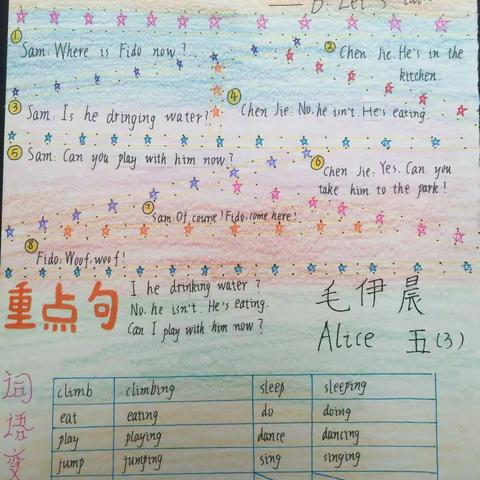 — B. Let's
① Sam: Where is Fido now?
② Chen Jie: He's in the
kitchen.
③ Sam: Is he dringing water?
④ Chen Jie: No, he isn't. He's eating.
⑤ Sam: Can you play with him now?
⑥ Chen Jie: Yes. Can you
take him to the park!
⑦ Sam: Of course! Fido, come here!
⑧ Fido: Woof, woof!
重点句
I he drinking water?
No, he isn't. He's eating.
Can I play with him now?
毛伊晨
Alice 五(3)
词语变
climb climbing sleep sleeping
eat eating do doing
play playing dance dancing
jump jumping sing singing